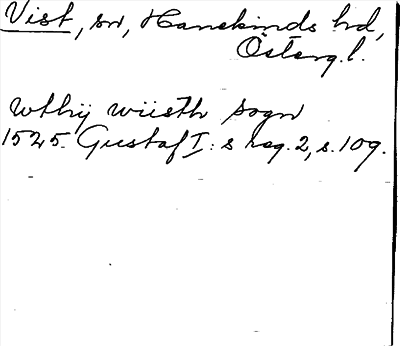 Vist, sn, Hanekinds hd,
Österg.l.
wthij wiisth sogn
1525. Gustaf I:s reg. 2, s. 109.